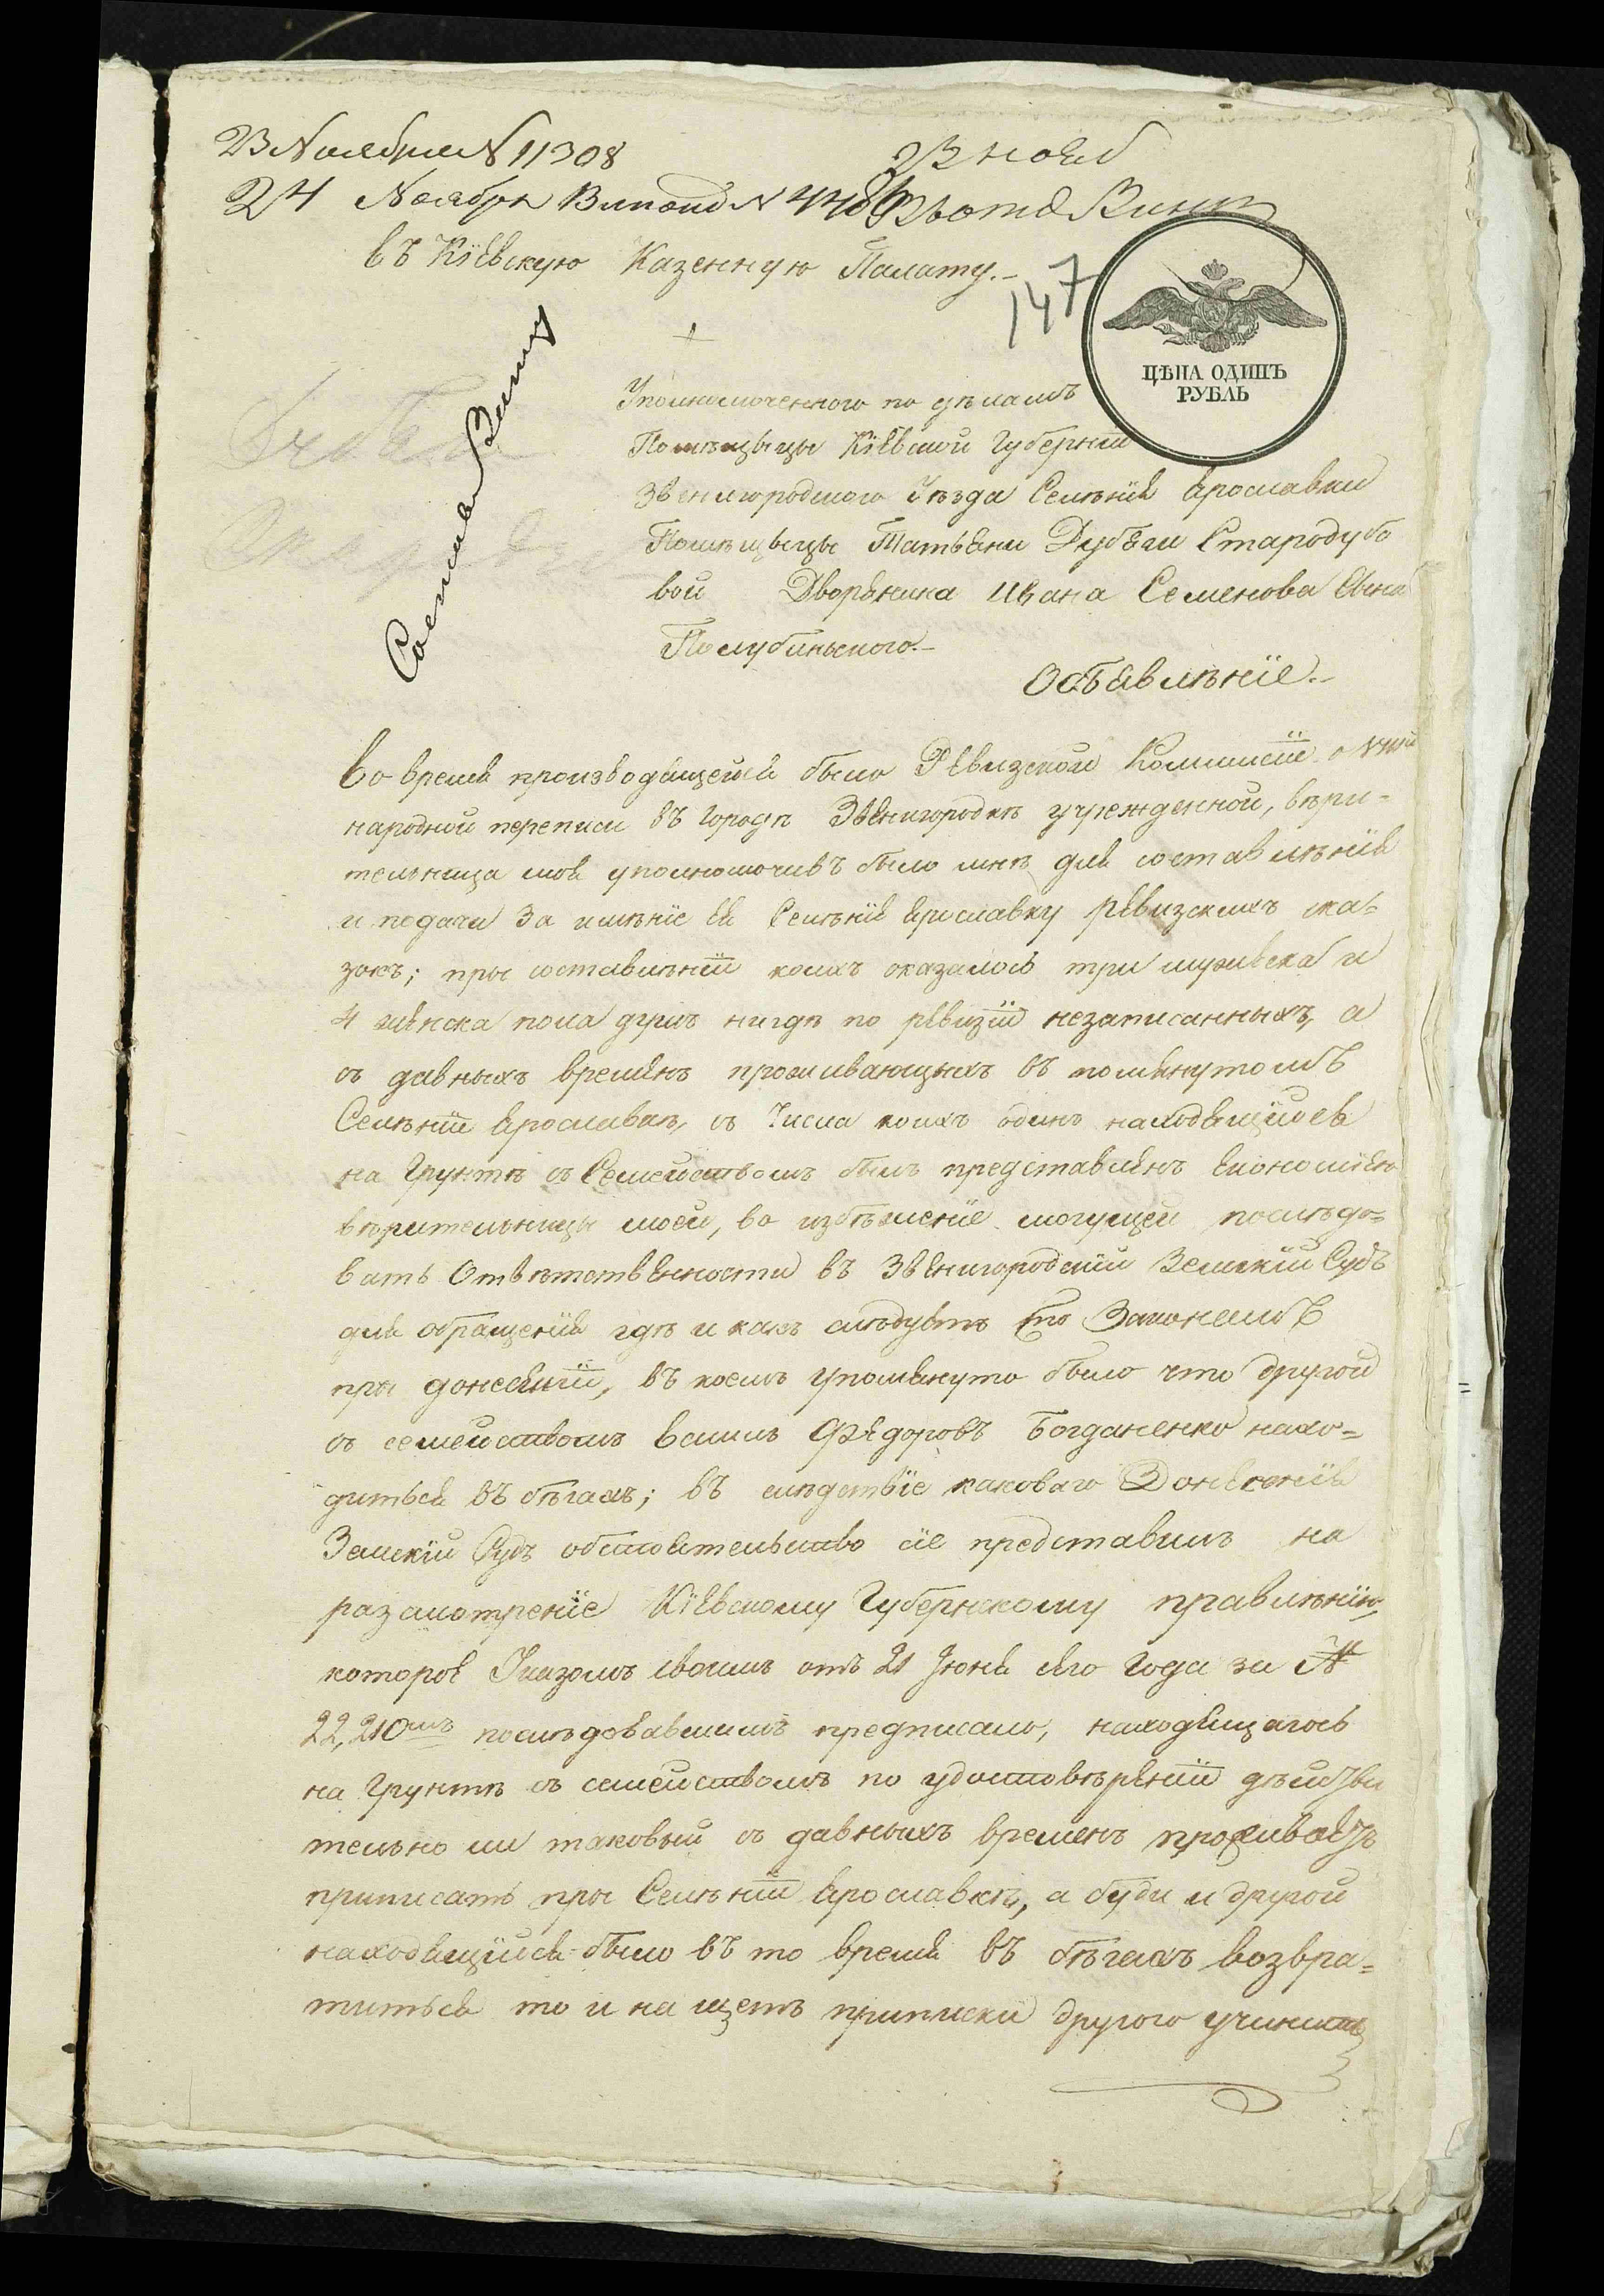 23 Ноября N 11308
23 нояб
24 Ноября N
въ Кіевскую Казенную Палату.-
147
ЦѢНА ОДИНЪ
РУБЛЬ
Уполномоченного по дѣламъ
Помѣщыцы Кіевской Губерніи
Звенигородского Уѣзда Селѣнія Ярославки
Помѣщыцы Татьяни Стародубо
вой Дворяника Ивана Семенова Сына
Полубинского.-
Объявлѣніе.-
Во время производящейся было Ревизской Коммисіи о VIII
народной переписи въ городѣ Звенигородкѣ учрежденной, вѣри=
тельница моя уполномочивъ было мнѣ для составлѣнія
и подачи за имѣніе ея Селѣніе Ярославку ревизскихъ ска=
зокъ; пры составлѣніи коихъ оказалось три мужеска и
4 женска пола душъ нигдѣ по ревизіи незаписанныхъ, а
съ давныхъ времянъ проживающыхъ въ помянутомъ
Селѣніи Ярославкѣ, съ числа коихъ одинъ находящійся
на грунтѣ съ Семействомъ былъ представленъ економіею
вѣрительницы моей, во избѣжение могущей послѣдо=
вать Отвѣтственности въ Звенигородскій Земскій Судъ
для обращенія гдѣ и какъ слѣдуетъ по Законамъ
пры донесеніи, въ коемъ упомянуто было что другой
съ семействомъ Федоровъ Богданенко нахо=
дитъся въ бѣгахъ; въ слѣдствіе каковаго Донесенія
Земскій Судъ обстоятельство сіе представилъ на
разсмотреніе Кіевскому Губернскому правлѣнію,
которое Указомъ своимъ отъ 21 Июня сего года за №
22,210мъ послѣдовавшимъ предписало, находящагось
на грунтѣ съ семействомъ по удостовѣреніи дѣйстви
тельно ли таковый съ давныхъ временъ проживаетъ
приписать пры Селѣніи Ярославкѣ, а буди и другой
находящійся было въ то время въ бѣгахъ возвра=
титься то и на щетъ приписки другого учинить